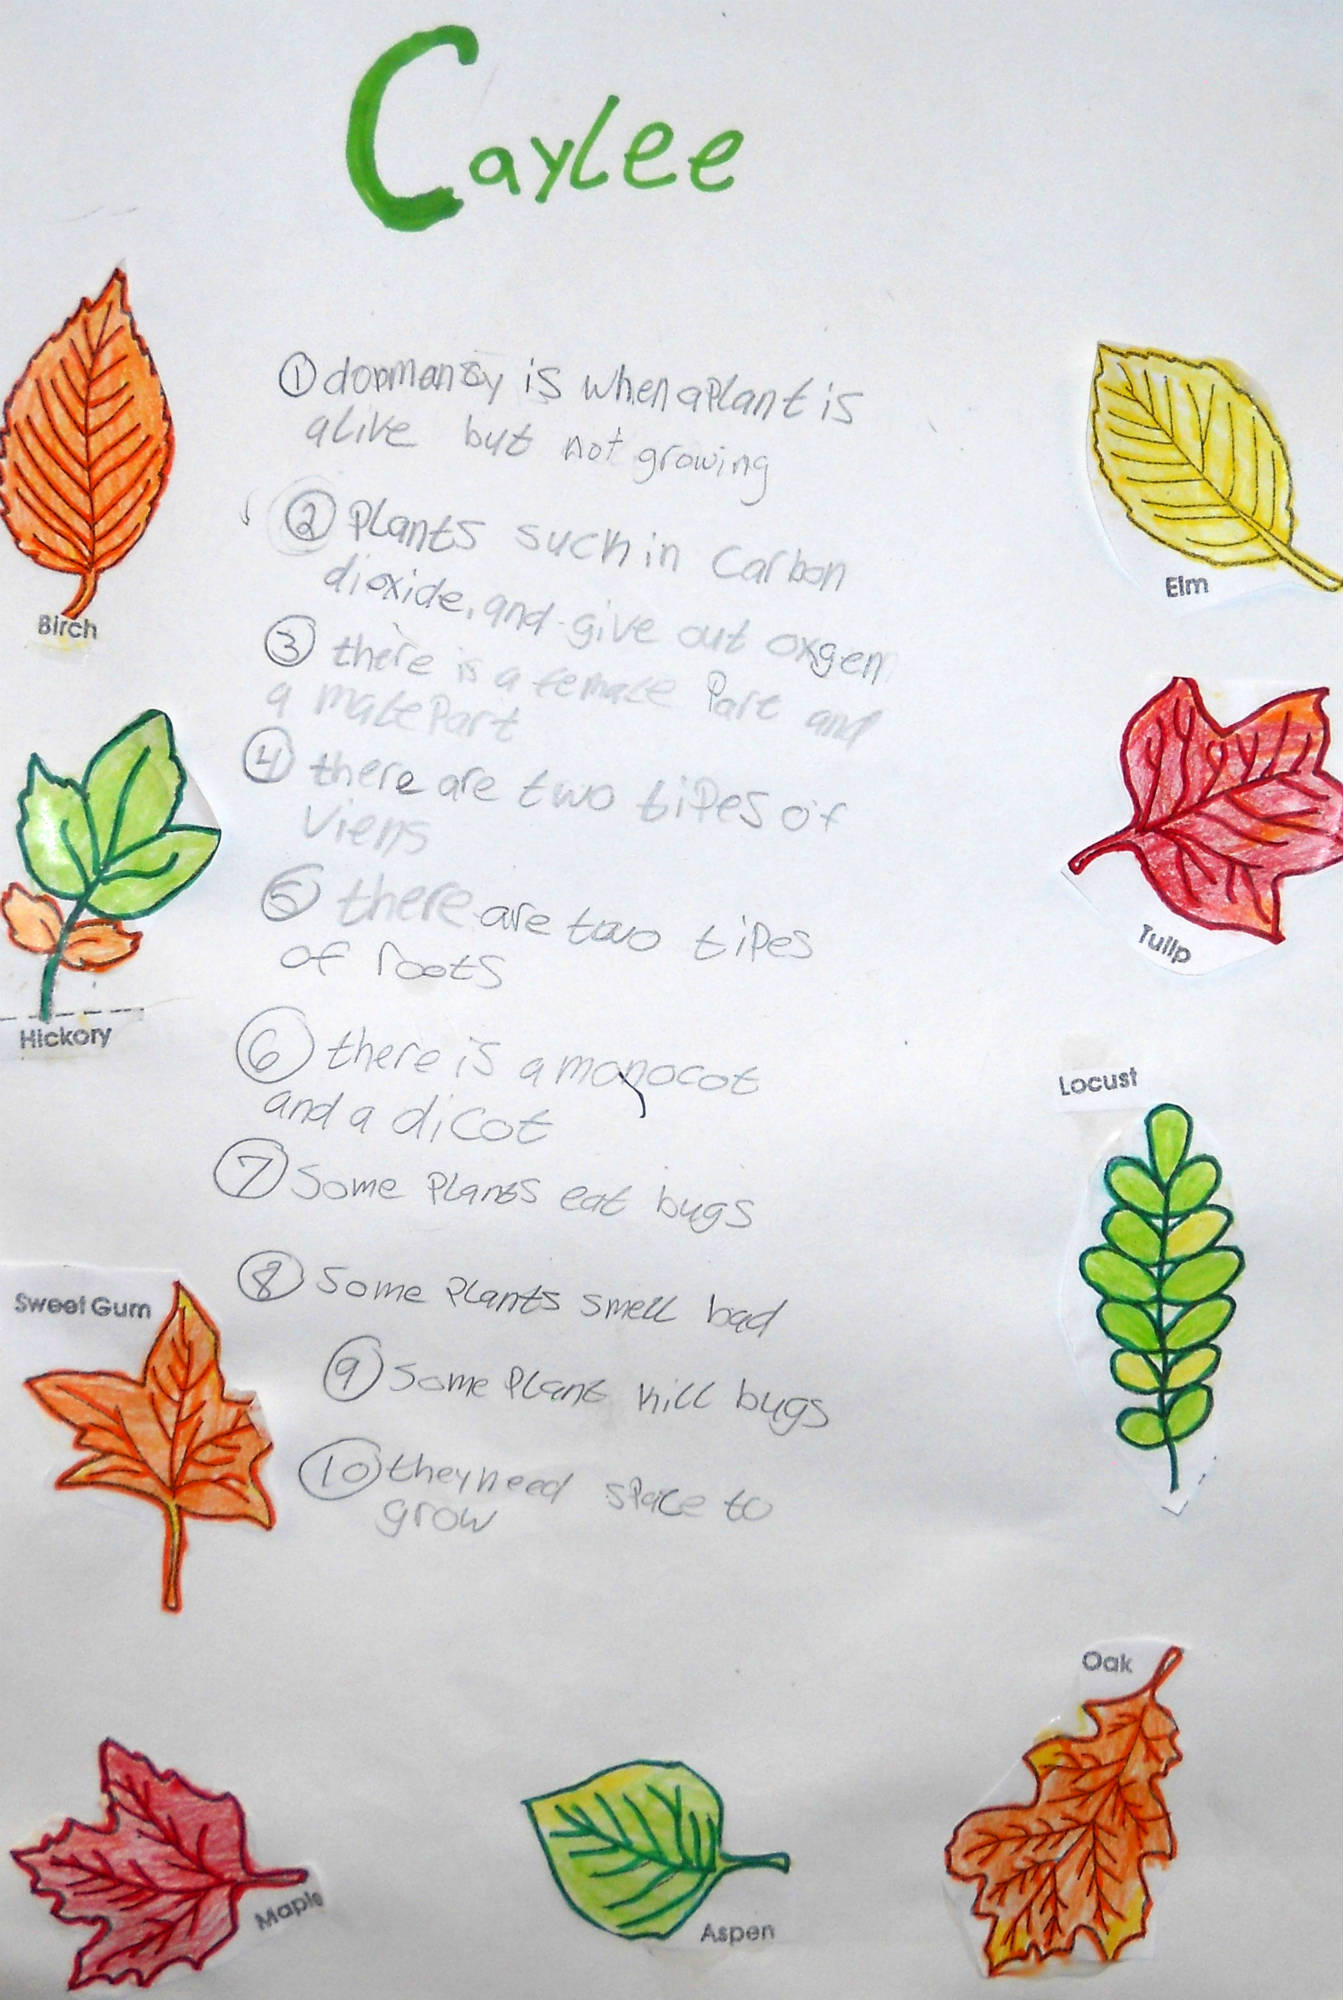 Caylee
① dormansy is when a plant is
alive but not growing
② Plants such in Carbon
dioxide, and give out oxgen
③ there is a female Part and
a male Part
④ there are two tipes of
viens
⑤ there are two tipes
of roots
⑥ there is a monocot
and a dicot
⑦ Some Plants eat bugs
⑧ Some Plants smell bad
⑨ Some Plant kill bugs
⑩ they need space to
grow
Birch
Hickory
Sweet Gum
Maple
Aspen
Elm
Tulip
Locust
Oak